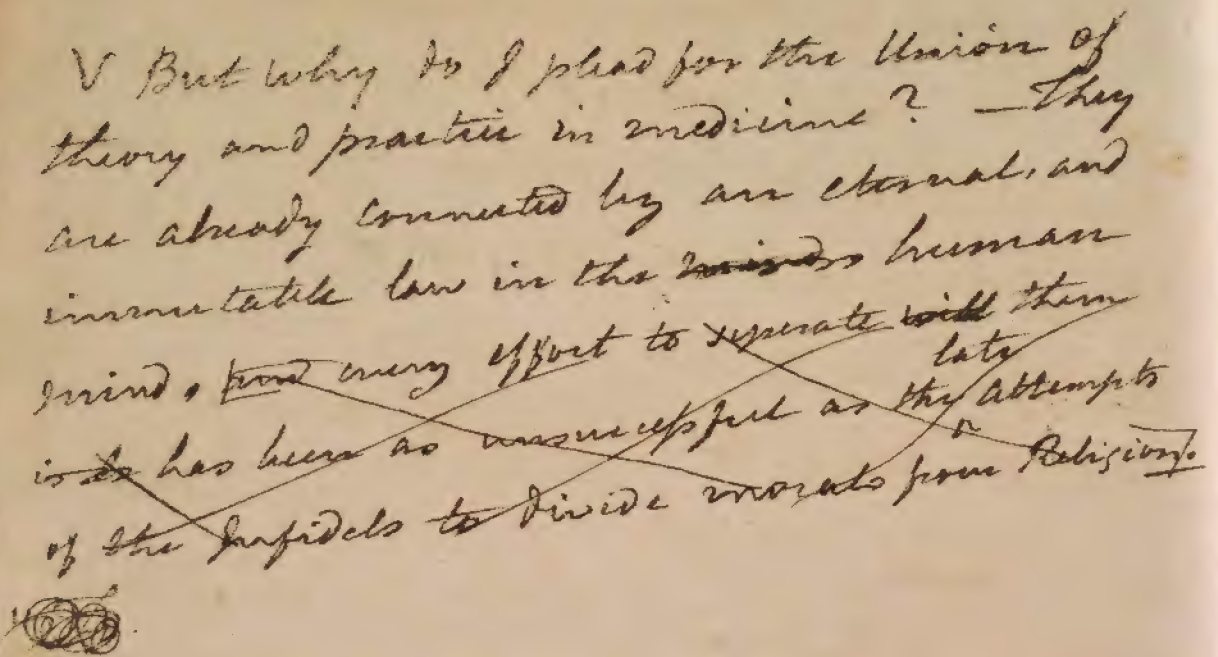 V But why do I plead for the Union of
theory and practice in medicine? — They
are already connected by an eternal, and
immutable law in the minds human
mind, and every effort to seperate will them
late
is has been as unsuccessful as the attempts
of the Infidels to divide morals from Religion.